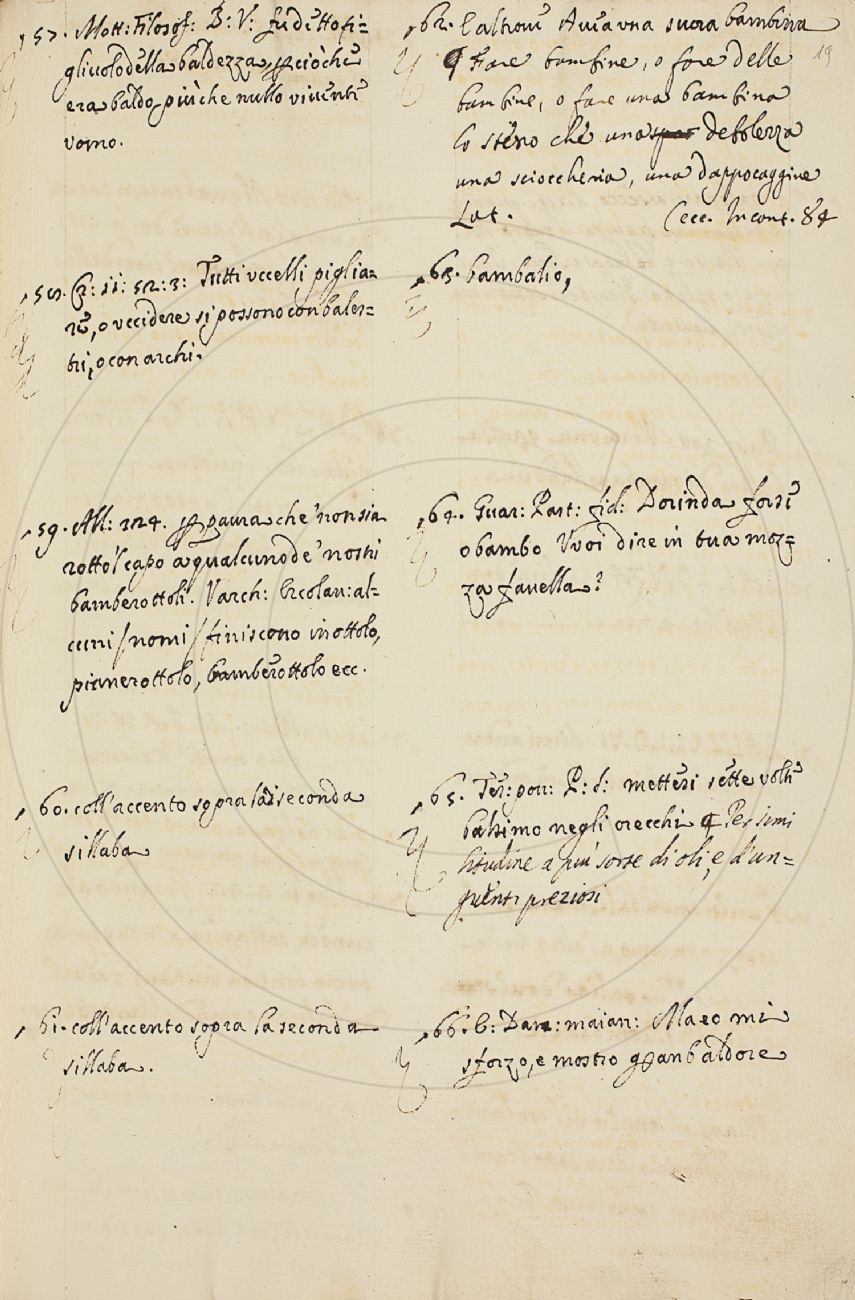 57. Mott: Filosof: B: V: fu detto fi=
gliuolo della baldezza, perciò che
era baldo più che nullo vivente
vomo.
58. Cr: 11: 52: 3: Tutti vccelli piglia=
re, o vccidere si possono con bales=
tri, o con archi.
59. All: 324. per paura che non sia
rotto 'l capo a qualcuno de' nostri
bamberottoli. Varch: Ercolan: al=
cuni / nomi / finiscono in ottolo,
pianerottolo, bamberottolo ecc.
60. coll'accento sopra la seconda
sillaba
61. coll'accento sopra la seconda
sillaba.
19
62. E altrove Avia vna suora bambina
Fare bambine, o fare delle
bambine, o fare una bambina
lo steso che una debolezza
una scioccheria, una dappocaggine
Lat. Cecc. Incant. 84
63. bambalio,
64. Guar: Past: fid: Dorinda forse
o bambo Vuoi dire in tua moz=
za favella?
65. Tes: pov: P: S: mettesi sette volte
balsimo negli orecchi Per simi
litudine a più sorte di oli, e d'un=
guenti preziosi
66. B: Dan: maian: Ma eo mi
sforzo, e mostro gran baldore